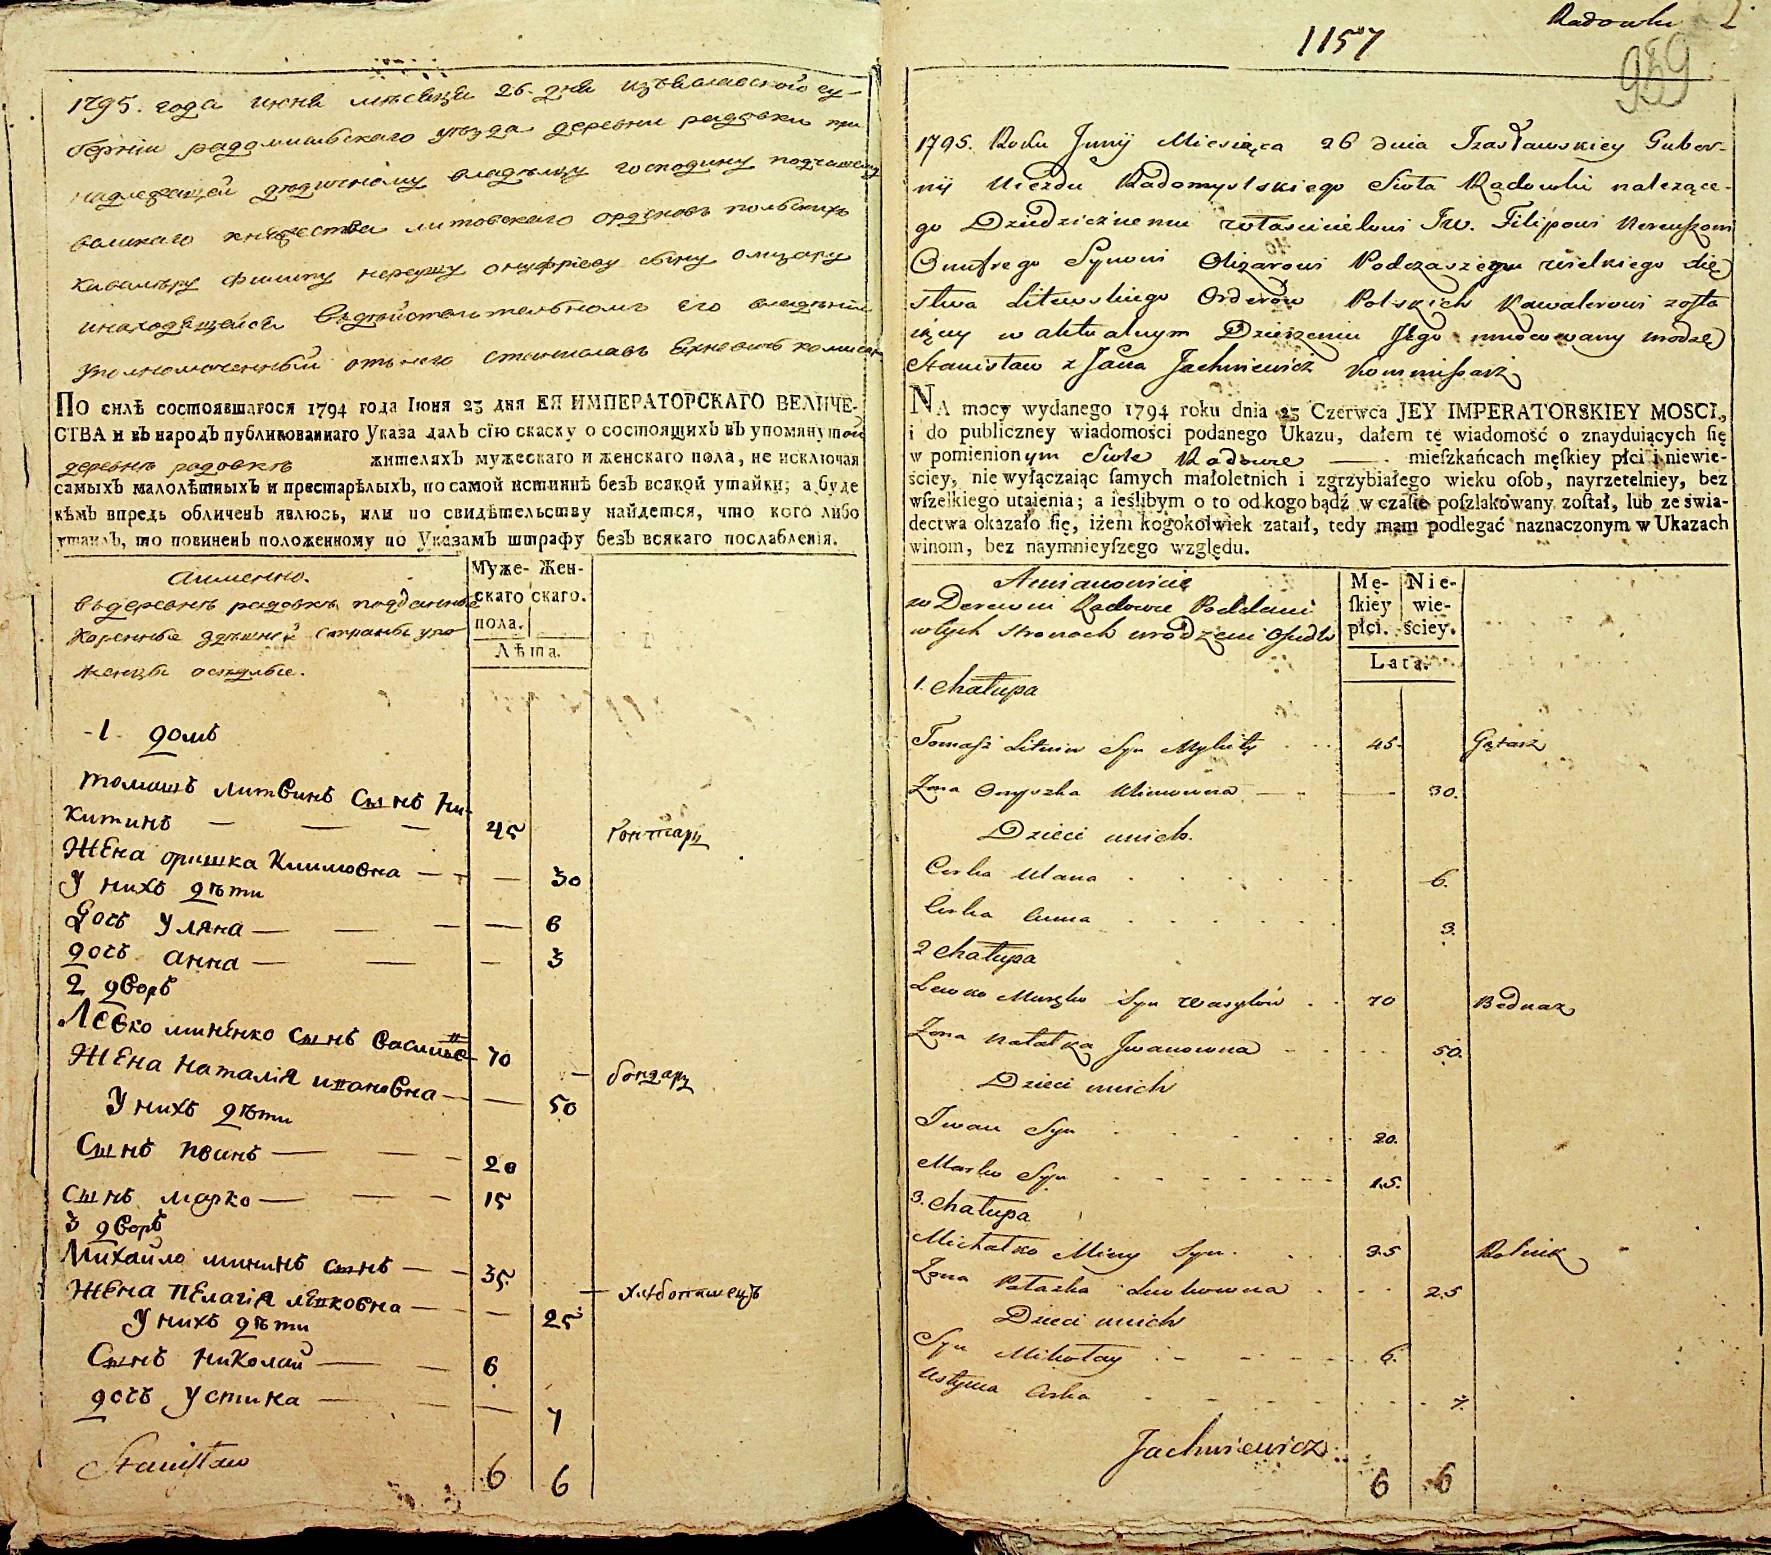 1795. года июня месяца 26. дня изъяславской гу-
бернии радомишьскаго уезда деревни радовки при
надлежащей дедичному владельцу господину подчашему
великаго княжества литовскаго орденовъ польскихъ
кавалеру филипу нерезушу онуфриеву сыну олизару
и находящейся въ действительномъ его владении
уполномоченный отъ него станиславъ
ПО силѣ состоявшагося 1794 года Іюня 23 дня ЕЯ ИМПЕРАТОРСКАГО ВЕЛИЧЕ-
СТВА и въ народъ публикованнаго Указа далъ сїю скаску о состоящихъ въ упомянутой
деревнѣ радовкѣ жителяхъ мужескаго и женскаго пола, не исключая
самыхъ малолѣтныхъ и престарѣлыхъ, по самой истиннѣ безъ всякой утайки; а буде
кѣмъ впредь обличенъ явлюсь, или по свидѣтельству найдется, что кого либо
утаилъ, то повиненъ положенному по Указамъ штрафу безъ всякаго послабленїя.
Муже- Жен-
аименно.
скаго скаго.
въ деревнѣ радовкѣ подданные
пола.
коренные здѣшней страны уро
Лѣта.
женцы оседлые.
-1 домъ
томашъ литвинъ сынъ ни-
китинъ — — — 45 гонтарь
Жена оришка климовна — — — 30
У нихъ дѣти
дочъ уляна — — — — 6
дочъ анна — — — 3
2 дворъ
Левко миненко сынъ василье 70
Жена наталїя ивановна — — 50 бондарь
У нихъ дѣти
Сынъ ивинъ — — — 20
сынъ марко — — — 15
3 дворъ
Михайло мининъ сынъ — — 35
Жена пелагїя левковна — — 25 хлебопашецъ
У нихъ дѣти
Сынъ николай — — 6
дочъ устина — — — 7
Stanisław 6 6
Radowka 2
1157
959
1795. Roku Junij Miesiąca 26 dnia Izasławskiey Guber-
nij Uiezdu Radomyslskiego Sioła Radowki należące-
go Dziedzicznemu właścicielowi Jw. Filipowi Nereuszowi
Onufrego Synowi Olizarowi Podczaszemu wielkiego Xię
stwa Litewskiego Orderów Polskich Kawalerowi zosta
iący w aktualnym Dzierzeniu Jego umocowany
Stanisław z Jana Jachniewicz Kommissarz
NA mocy wydanego 1794 roku dnia 23 Czerwca JEY IMPERATORSKIEY MOSCI,
i do publiczney wiadomości podanego Ukazu, dałem tę wiadomość o znayduiących ſię
w pomienionym Siole Radowce — mieſzkańcach męſkiey płci i niewie-
ściey, nie wyłączaiąc ſamych małoletnich i zgrzybiałego wieku oſob, nayrzetelniey, bez
wſzelkiego utaienia; a ieślibym o to od kogo bądź w czaſie poſzlakowany zoſtał, lub ze świa-
dectwa okazało ſię, iżem kogokolwiek zataił, tedy mam podlegać naznaczonym w Ukazach
winom, bez naymnieyſzego względu.
Mę- Nie-
ſkiey wie-
płci. ściey.
w Derewni Radowce Poddani
w tych stronach urodzeni
Lata.
1. Chałupa
Tomasz Litwin Syn Mykity . . . 45. Gątarz
Żona Oryszka Klimowna — — 30.
Dzieci unich.
Corka Ulana . . . . . 6.
Corka Anna . . . . . 3.
2 Chałupa
Lewko Syn Wasylów . . 70 Bednarz
Żona Natałka Jwanowna . . . . 50.
Dzieci unich
Jwan Syn . . . . . 20.
Marko Syn . . . . . . 15.
3. Chałupa
Michałko Miny Syn. . . . 35 Rolnik
Żona Pałazka Lewkowna . . . 25
Dzieci unich
Syn Mikołay . . . . . 6.
Ustyna Corka . . . . . . 7.
Jachniewicz
6 6